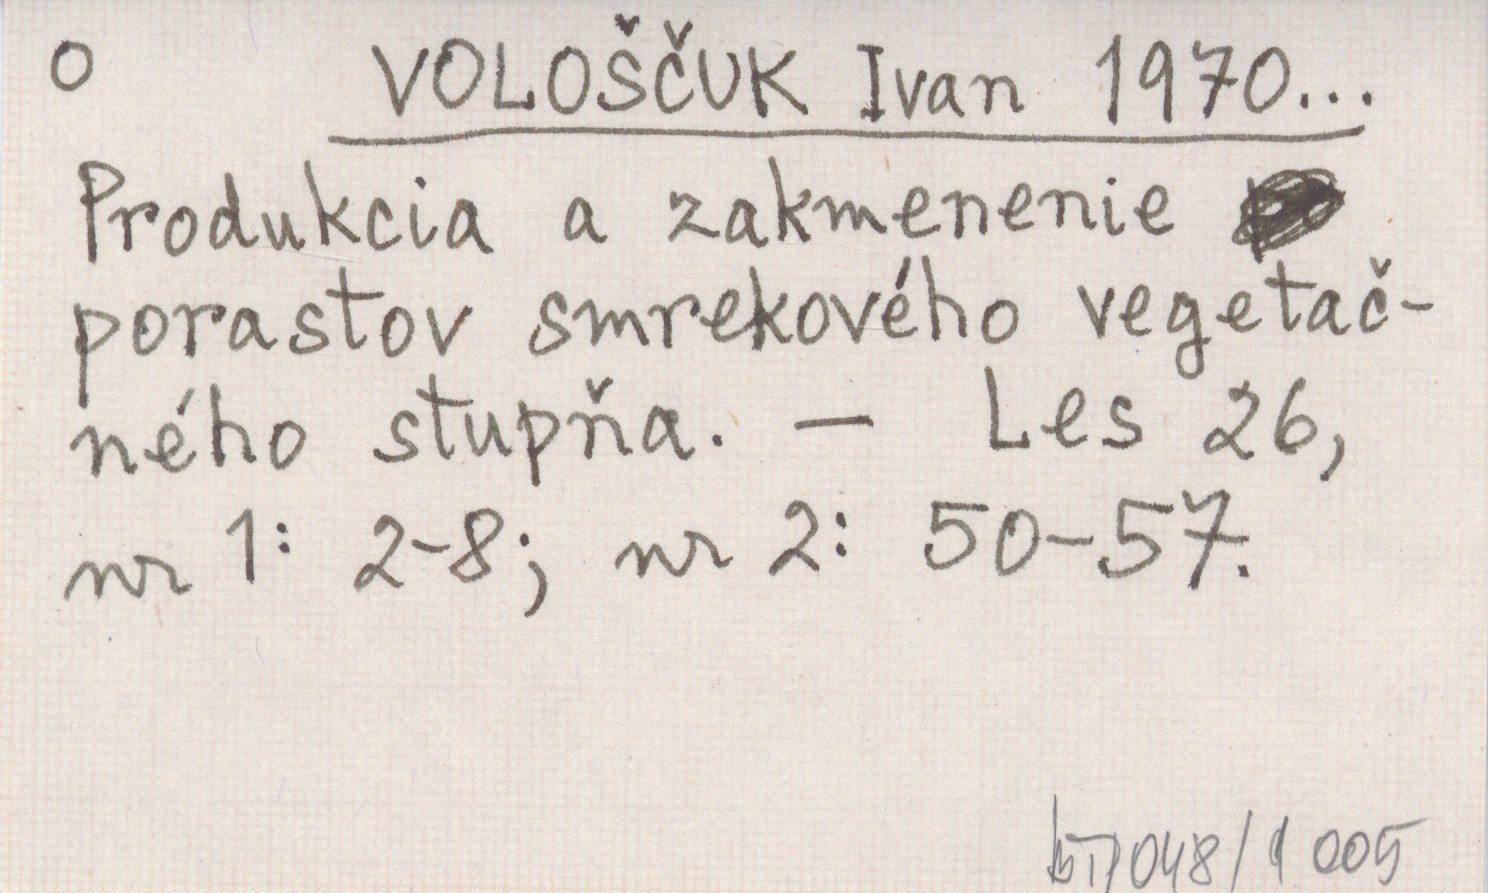 O VOLOŠČUK Ivan 1970...
Produkcia a zakmenenie
porastov smrekového vegetač-
ného stupňa. — Les 26,
nr 1: 2-8; nr 2: 50-57.
048/1005